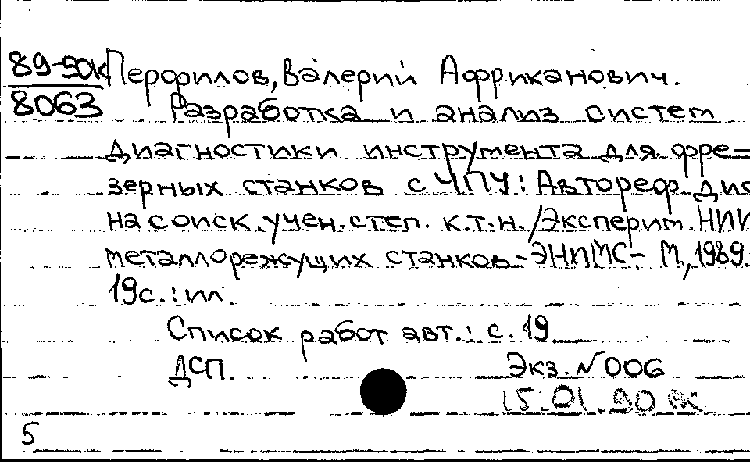 89-50к Перфилов, Валерий Африканович.
8063 Разработка и анализ систем
диагностики инструмента для фре-
зерных станков с ЧПУ: Автореф. дис
на соиск. учен. степ. к.т.н. /Эксперим. НИИ
металлорежущих станков - ЭНИМС - М, 1989.
19с.: ил.
Список работ авт.: с. 19
ДСП. Экз. № 006
15.01.90
5